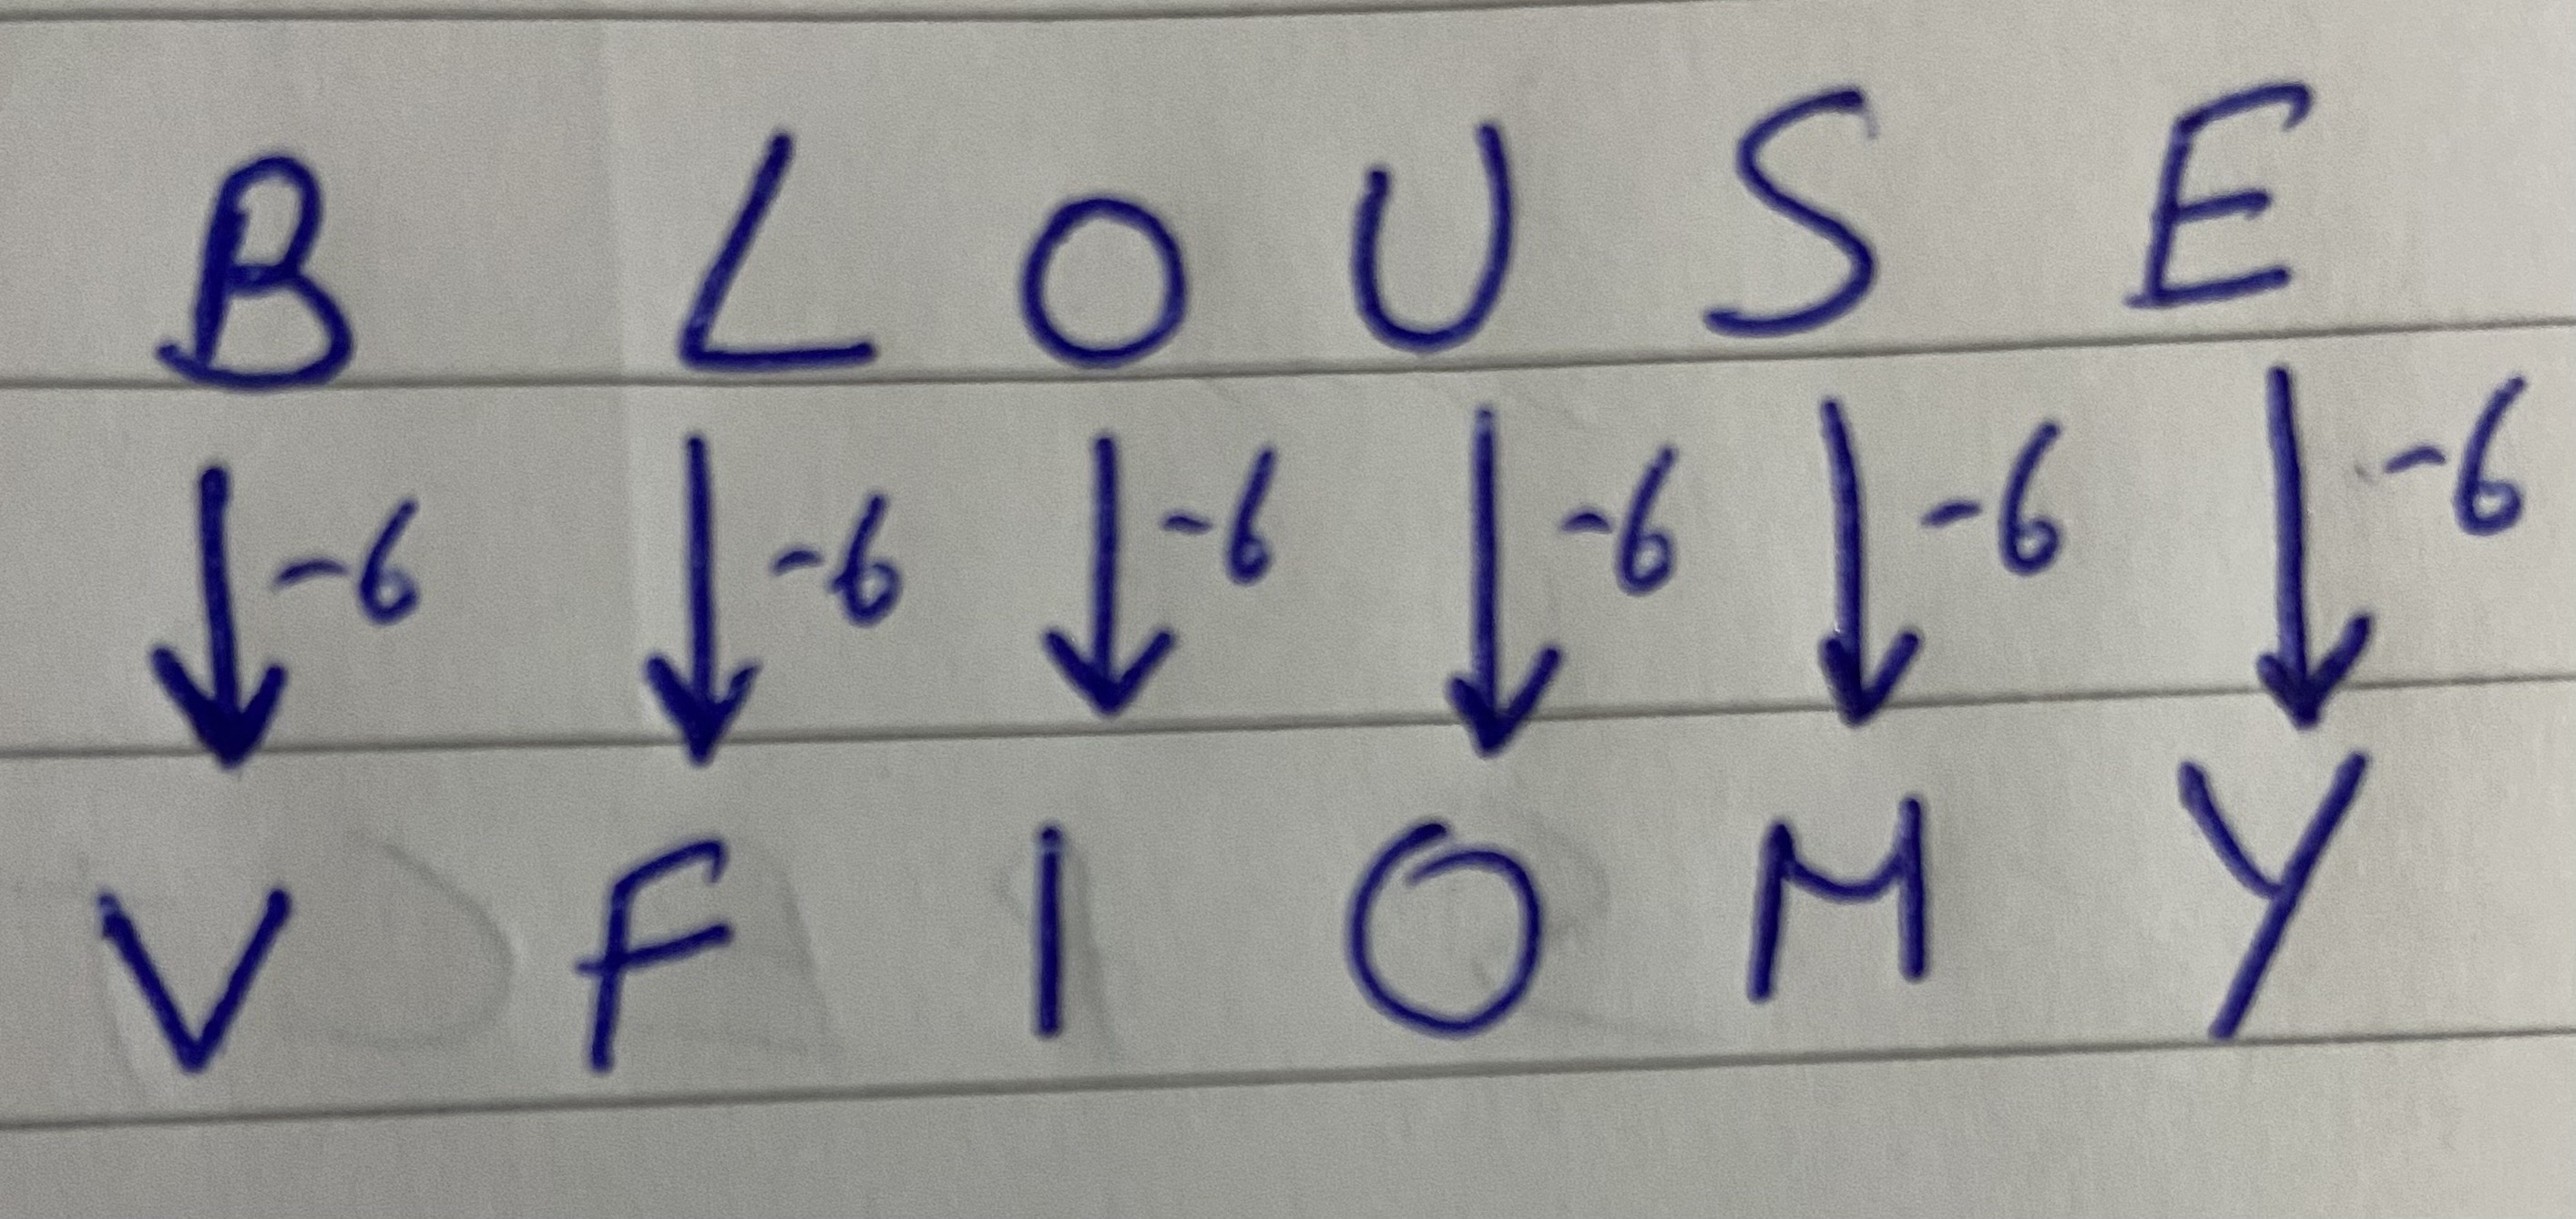 B L O U S E
↓-6 ↓-6 ↓-6 ↓-6 ↓-6 ↓-6
V F I O M Y